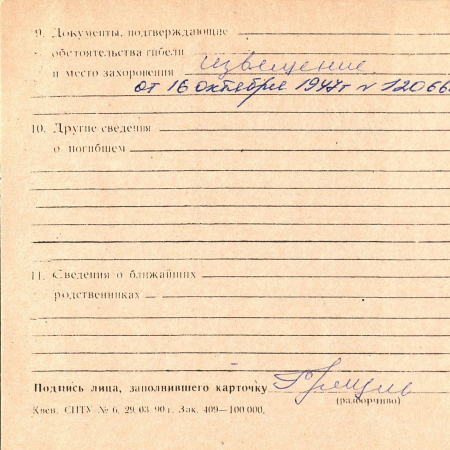 9. Документы, подтверждающие
обстоятельства гибели
и место захоронения извещение
от 16 октября 1947г N 12066
10. Другие сведения
о погибшем
11. Сведения о ближайших
родственниках
Подпись лица, заполнившего карточку
(разборчиво)
Киев. СПТУ № 6, 29. 03. 90 г. Зак. 409—100 000.